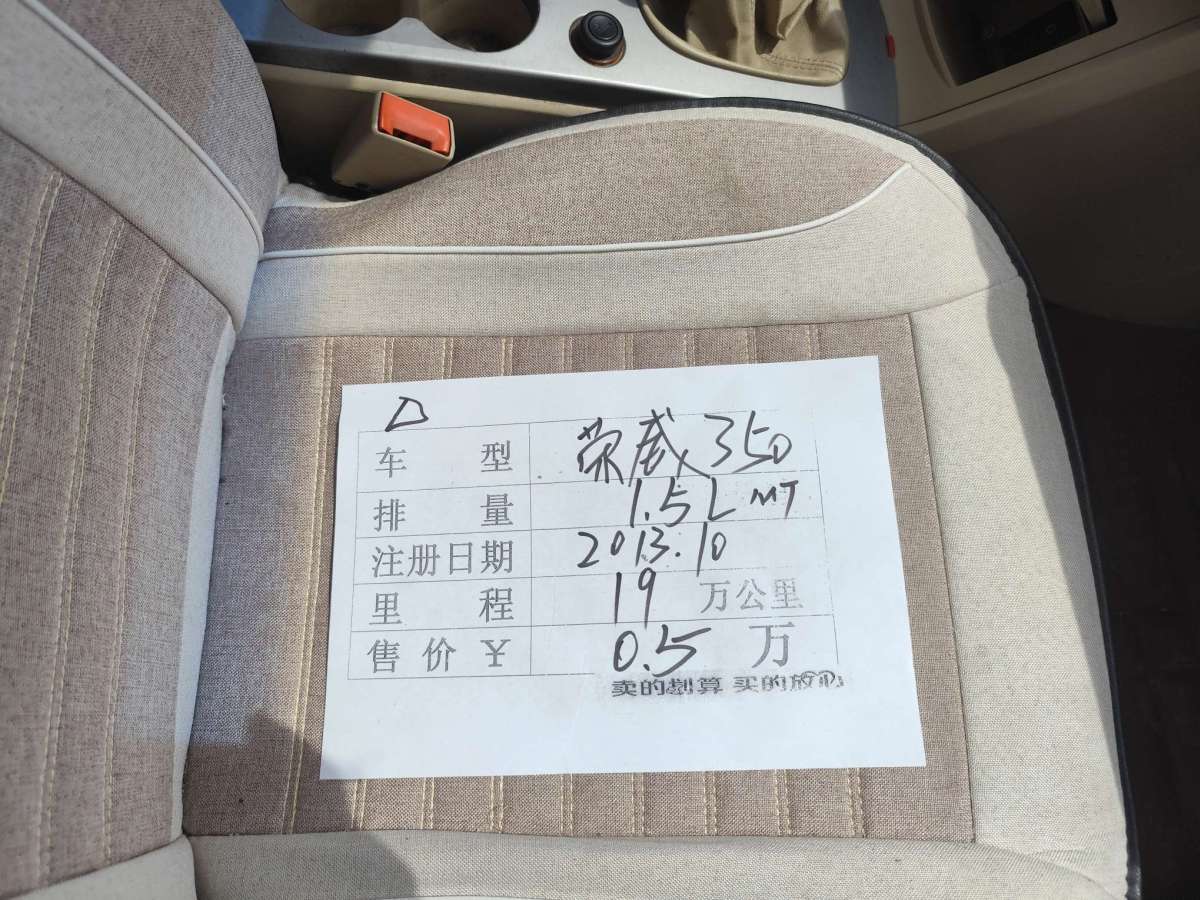 D
车型 荣威350
排量 1.5L MT
注册日期 2013.10
里程 19 万公里
售价¥ 0.5 万
卖的划算 买的放心